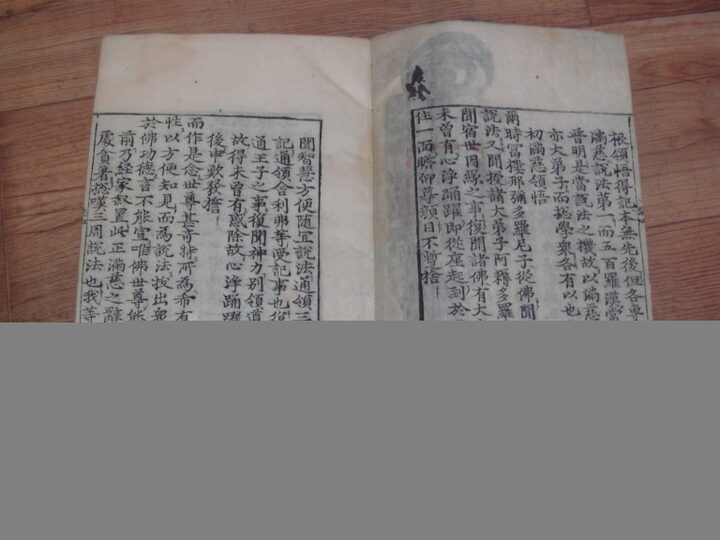 根領悟得記本無先後但各專
滿慈說法第一而五百羅漢當
普明是當說法之機故以滿慈
亦大弟子而摠學衆各有以也
初滿慈領悟
爾時富樓那彌多羅尼子從佛聞
說法又聞授諸大弟子阿耨多羅
聞宿世因緣之事復聞諸佛有大
未曾有心淨踊躍即從座起到於
住一面瞻仰尊顔目不暫捨
聞智慧方便隨宜說法通領三
記通領舍利弗等受記事也從
通王子之事復聞神力別領道
故得未曾有惑除故心淨踊躍
後申歎發
而作是念世尊甚奇特所爲希有
性以方便知見而爲說法拔出衆
於佛功德言不能宣唯佛世尊能
前乃經家叙置此正滿慈之辭
處貪著摠嘆三周說法也我等